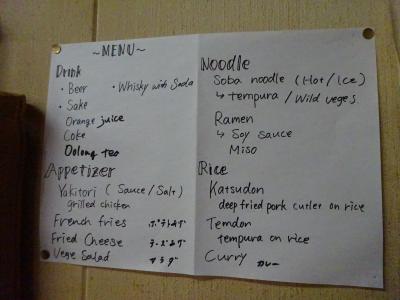 ~MENU~
Drink
• Beer • Whisky with Soda
• Sake
Orange juice
Coke
Oolong tea
Appetizer
Yakitori (Sauce/Salt)
grilled chicken
French fries ポテトあげ
Fried Cheese チーズあげ
Vege Salad サラダ
Noodle
Soba noodle (Hot/Ice)
↳ tempura / Wild veges
Ramen
↳ Soy sauce
Miso
Rice
Katsudon
deep fried pork cutlet on rice
Temdon
tempura on rice
Curry カレー